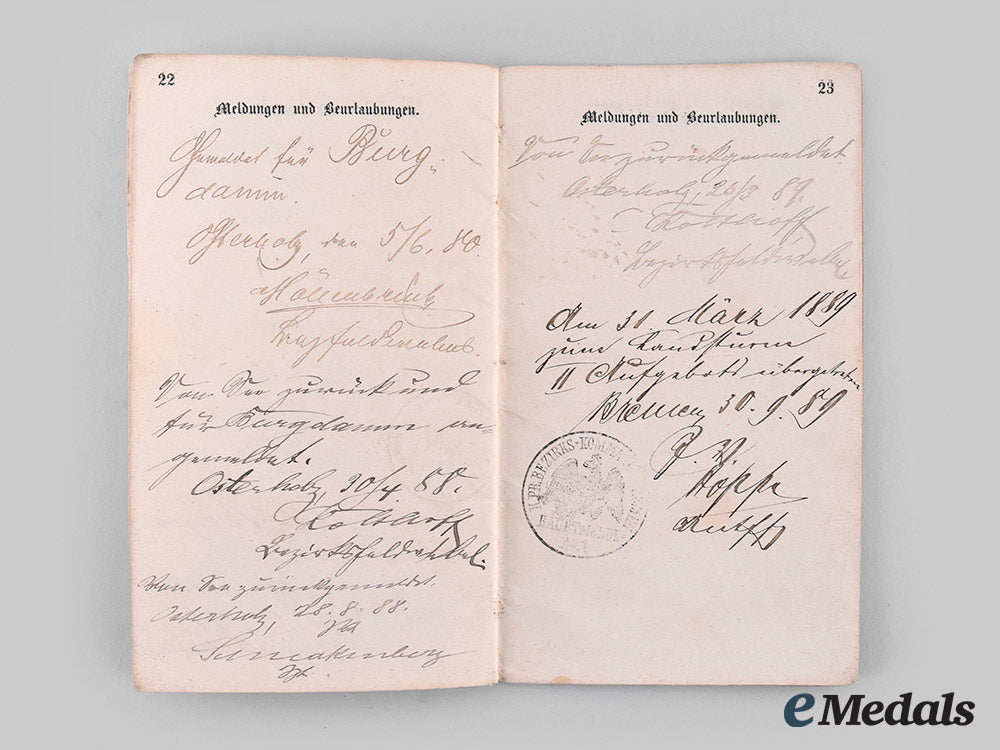 22
Meldungen und Beurlaubungen.
Gemeldet für Burg-
damm.
Osterholz, den 5/6. 80.
Von See zurück und
für Burgdamm an-
gemeldet.
Osterholz, 30/4 88.
Kolthoff
Bezirksfeldwebel.
Von See zurückgemeldet.
Osterholz, 28.8.88.
23
Meldungen und Beurlaubungen.
Von See zurückgemeldet
Osterholz, 26/3 89.
Kolthoff
Bezirksfeldwebel
Am 31. März 1889
zum Landsturm
II Aufgebots übergetreten
Bremen 30.9.89
J. V.
K.PR.BEZIRKS-KOMMA
eMedals